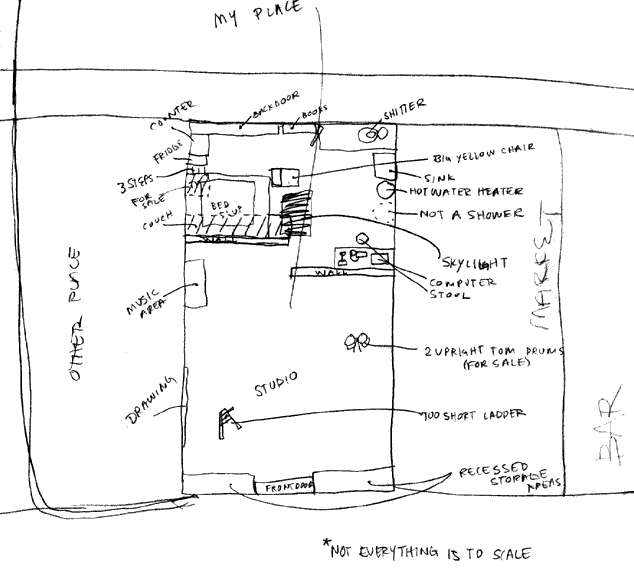 MY PLACE
COUNTER
BACKDOOR
BOOKS
SHITTER
FRIDGE
BIG YELLOW CHAIR
3 STEPS
SINK
FOR SALE
HOT WATER HEATER
BED
SLUP
NOT A SHOWER
COUCH
WALL
SKYLIGHT
WALL
COMPUTER
STOOL
MUSIC
AREA
OTHER PLACE
MARKET
2 UPRIGHT TOM DRUMS
(FOR SALE)
STUDIO
DRAWING
TOO SHORT LADDER
BAR
FRONT DOOR
RECESSED
STORAGE
AREAS
*NOT EVERYTHING IS TO SCALE